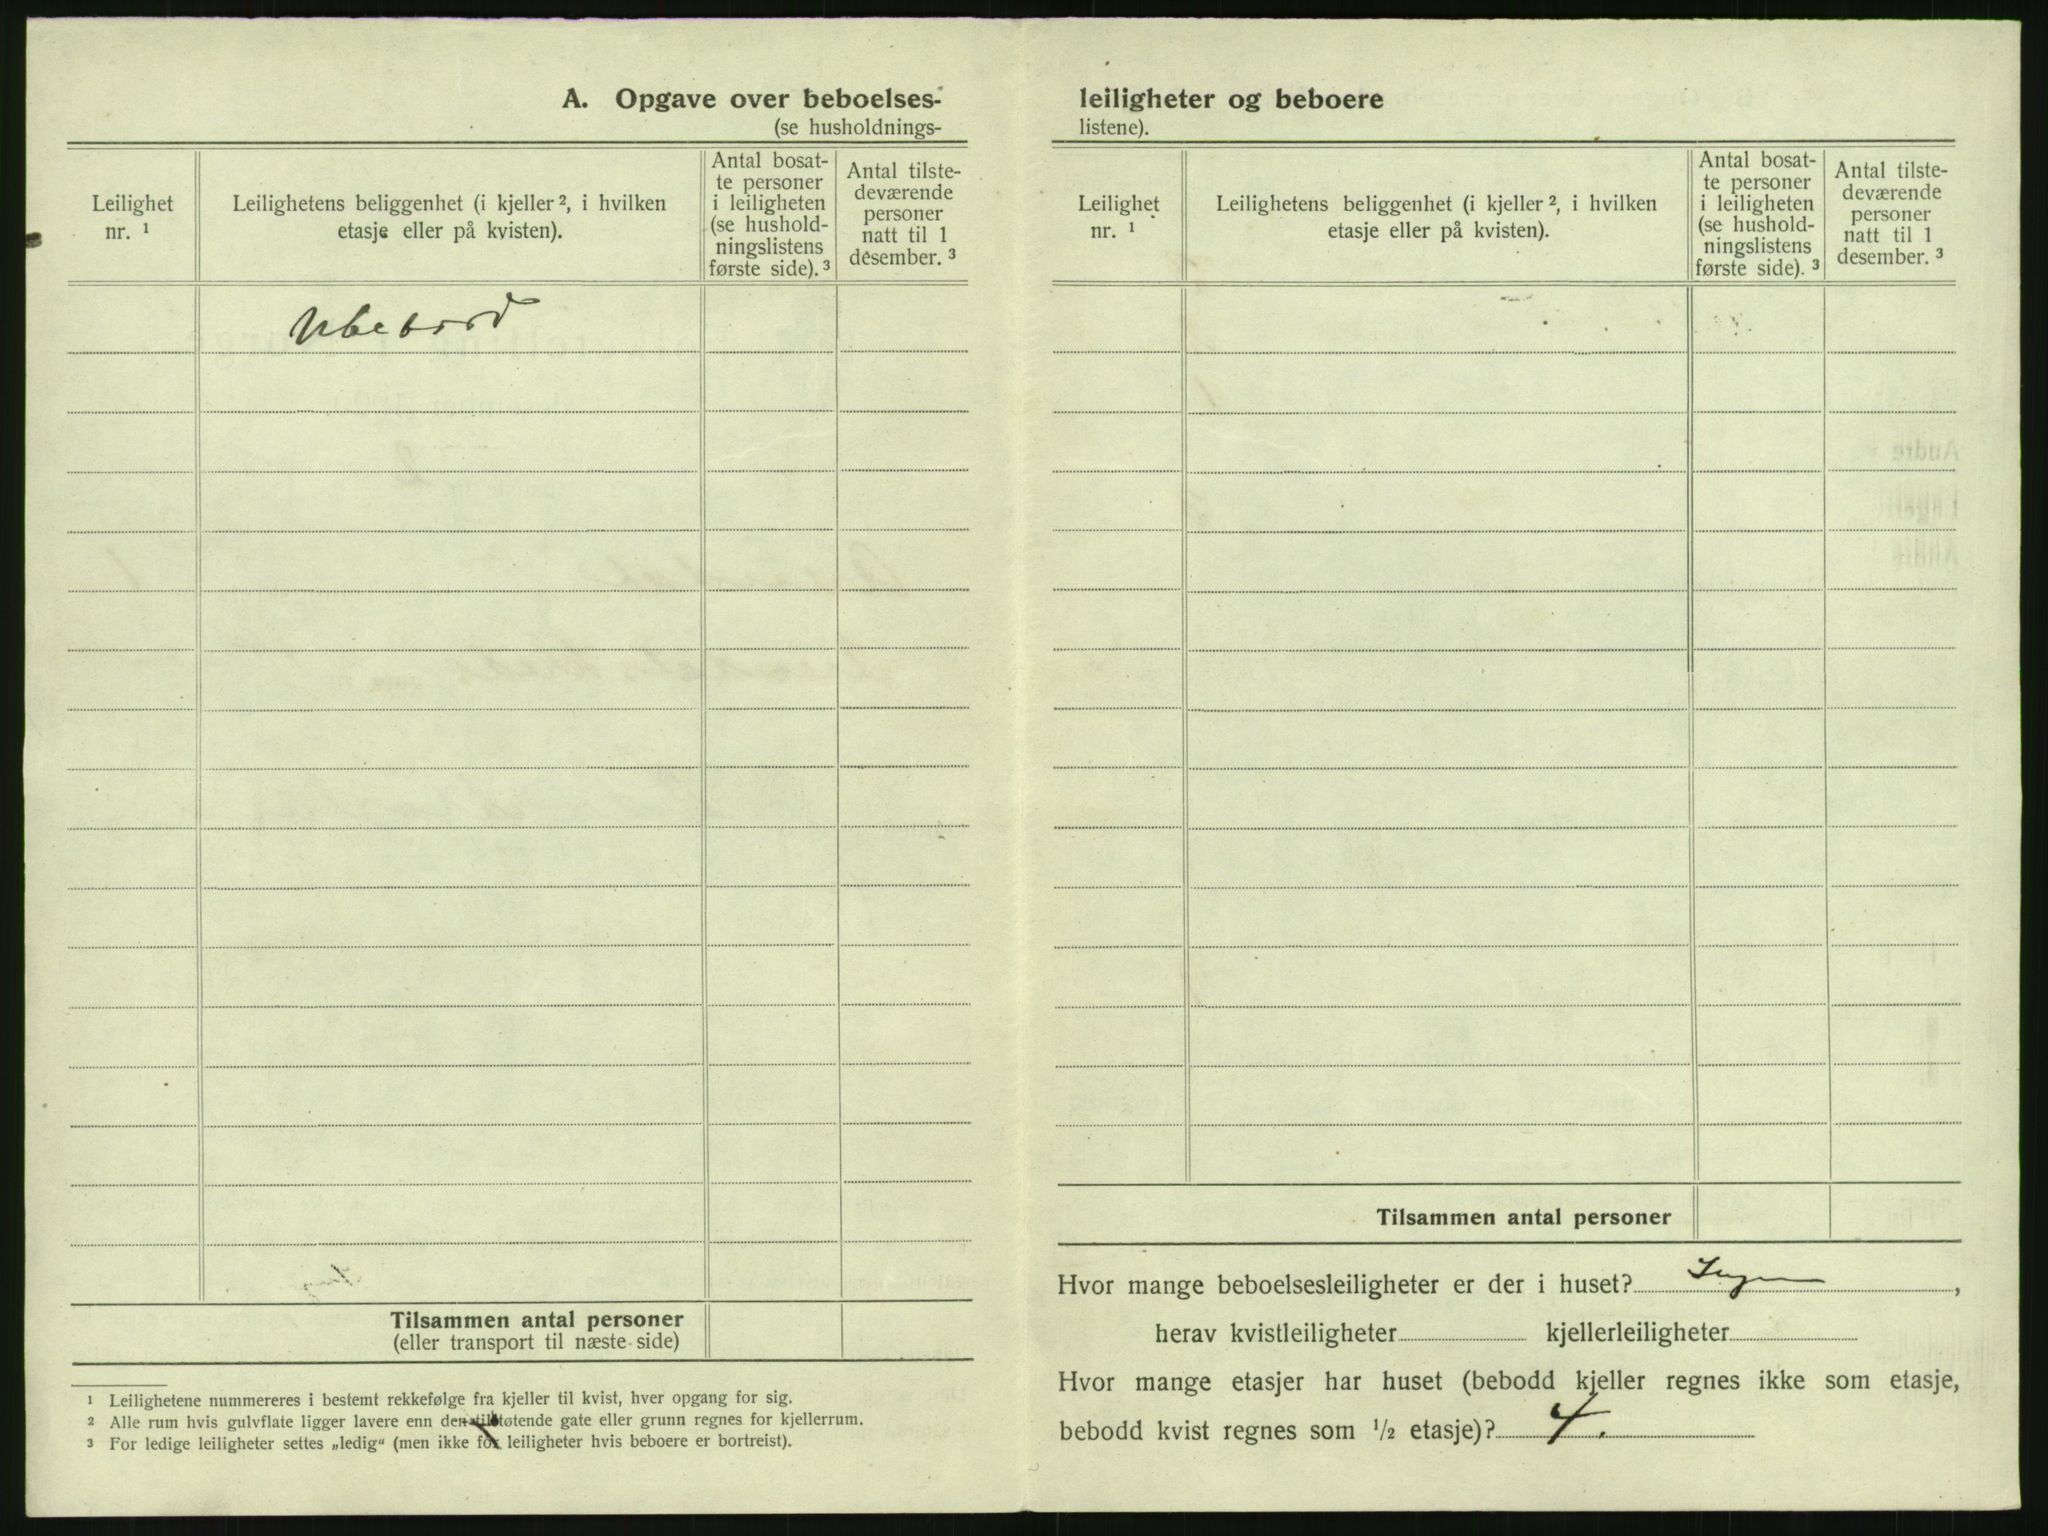 A. Opgave over beboelses-
(se husholdnings-
Leilighet
nr. ¹
Leilighetens beliggenhet (i kjeller ², i hvilken
etasje eller på kvisten).
Antal bosat-
te personer
i leiligheten
(se hushold-
ningslistens
første side). ³
Antal tilste-
deværende
personer
natt til 1
desember. ³
Ubebord
Tilsammen antal personer
(eller transport til næste side)
¹ Leilighetene nummereres i bestemt rekkefølge fra kjeller til kvist, hver opgang for sig.
² Alle rum hvis gulvflate ligger lavere enn den tilstøtende gate eller grunn regnes for kjellerrum.
³ For ledige leiligheter settes „ledig“ (men ikke for leiligheter hvis beboere er bortreist).
leiligheter og beboere
listene).
Leilighet
nr. ¹
Leilighetens beliggenhet (i kjeller ², i hvilken
etasje eller på kvisten).
Antal bosat-
te personer
i leiligheten
(se hushold-
ningslistens
første side). ³
Antal tilste-
deværende
personer
natt til 1
desember. ³
Tilsammen antal personer
Hvor mange beboelsesleiligheter er der i huset? Ingen,
herav kvistleiligheter kjellerleiligheter
Hvor mange etasjer har huset (bebodd kjeller regnes ikke som etasje,
bebodd kvist regnes som ½ etasje)? 4.